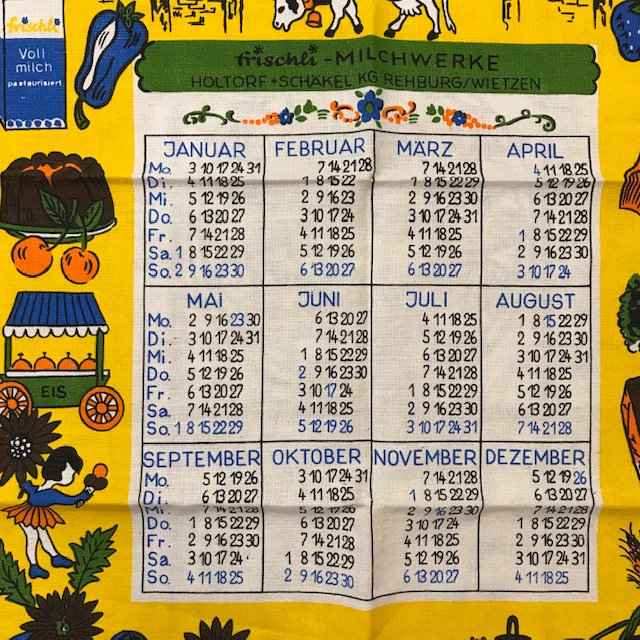 frischli
Voll
milch
pasteurisiert
frischli-MILCHWERKE
HOLTORF+SCHÄKEL KG REHBURG/WIETZEN
JANUAR FEBRUAR MÄRZ APRIL
Mo. 3 10 17 24 31 7 14 21 28 7 14 21 28 4 11 18 25
Di. 4 11 18 25 1 8 15 22 1 8 15 22 29 5 12 19 26
Mi. 5 12 19 26 2 9 16 23 2 9 16 23 30 6 13 20 27
Do. 6 13 20 27 3 10 17 24 3 10 17 24 31 7 14 21 28
Fr. 7 14 21 28 4 11 18 25 4 11 18 25 1 8 15 22 29
Sa. 1 8 15 22 29 5 12 19 26 5 12 19 26 2 9 16 23 30
So. 2 9 16 23 30 6 13 20 27 6 13 20 27 3 10 17 24
MAi JUNI JULI AUGUST
Mo. 2 9 16 23 30 6 13 20 27 4 11 18 25 1 8 15 22 29
Di. 3 10 17 24 31 7 14 21 28 5 12 19 26 2 9 16 23 30
Mi. 4 11 18 25 1 8 15 22 29 6 13 20 27 3 10 17 24 31
Do. 5 12 19 26 2 9 16 23 30 7 14 21 28 4 11 18 25
Fr. 6 13 20 27 3 10 17 24 1 8 15 22 29 5 12 19 26
Sa. 7 14 21 28 4 11 18 25 2 9 16 23 30 6 13 20 27
So. 1 8 15 22 29 5 12 19 26 3 10 17 24 31 7 14 21 28
EIS
SEPTEMBER OKTOBER NOVEMBER DEZEMBER
Mo. 5 12 19 26 3 10 17 24 31 7 14 21 28 5 12 19 26
Di. 6 13 20 27 4 11 18 25 1 8 15 22 29 6 13 20 27
Mi. 7 14 21 28 5 12 19 26 2 9 16 23 30 7 14 21 28
Do. 1 8 15 22 29 6 13 20 27 3 10 17 24 1 8 15 22 29
Fr. 2 9 16 23 30 7 14 21 28 4 11 18 25 2 9 16 23 30
Sa. 3 10 17 24 1 8 15 22 29 5 12 19 26 3 10 17 24 31
So. 4 11 18 25 2 9 16 23 30 6 13 20 27 4 11 18 25